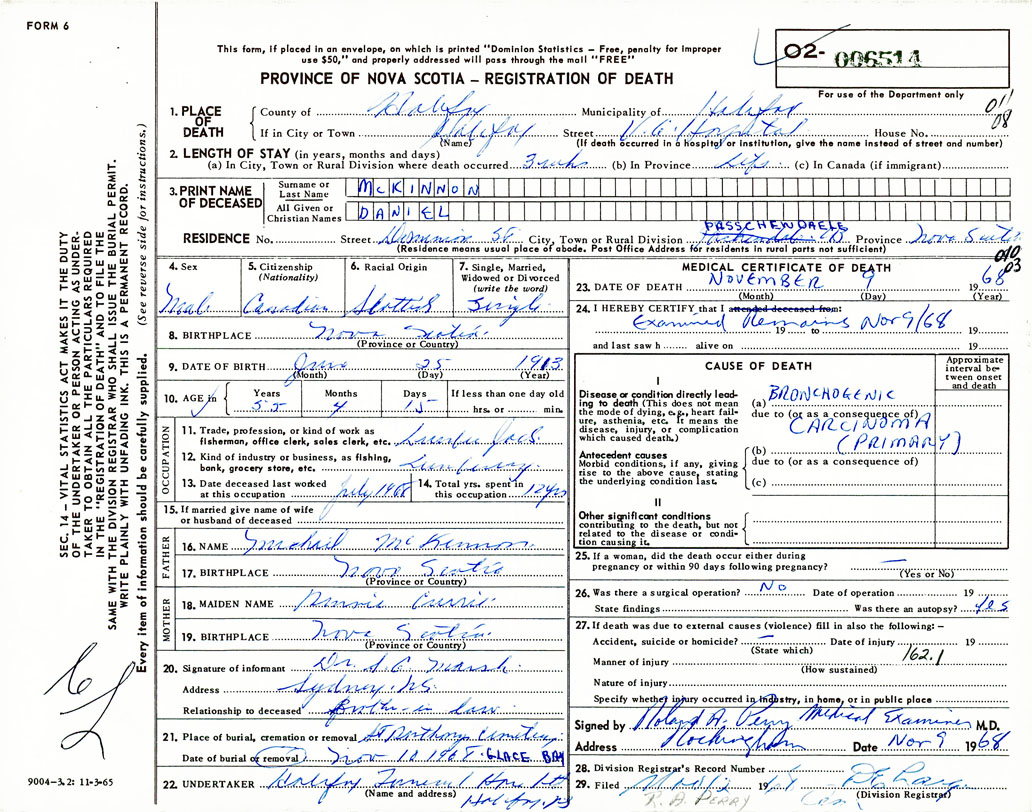 FORM 6
This form, if placed in an envelope, on which is printed "Dominion Statistics – Free, penalty for improper
use $50," and properly addressed will pass through the mail "FREE"
O2- 006514
For use of the Department only
PROVINCE OF NOVA SCOTIA – REGISTRATION OF DEATH
011
08
1. PLACE OF DEATH
County of Halifax Municipality of Halifax
If in City or Town Halifax Street V.G. Hospital House No.
(Name) (If death occurred in a hospital or institution, give the name instead of street and number)
2. LENGTH OF STAY (in years, months and days)
(a) In City, Town or Rural Division where death occurred 3 wks (b) In Province Life (c) In Canada (if immigrant)
3. PRINT NAME OF DECEASED
Surname or Last Name McKINNON
All Given or Christian Names DANIEL
PASSCHENDAELE
RESIDENCE No. Street Dominion St City, Town or Rural Division Province Nova Scotia
(Residence means usual place of abode. Post Office Address for residents in rural parts not sufficient)
010
03
4. Sex
Male
5. Citizenship (Nationality)
Canadian
6. Racial Origin
Scottish
7. Single, Married, Widowed or Divorced (write the word)
Single
8. BIRTHPLACE Nova Scotia
(Province or Country)
9. DATE OF BIRTH June 25 1913
(Month) (Day) (Year)
10. AGE in Years 55 Months 4 Days 15 If less than one day old hrs. or min.
OCCUPATION
11. Trade, profession, or kind of work as fisherman, office clerk, sales clerk, etc.
12. Kind of industry or business, as fishing, bank, grocery store, etc.
13. Date deceased last worked at this occupation July 1968
14. Total yrs. spent in this occupation 12 yrs
15. If married give name of wife or husband of deceased
FATHER
16. NAME Michael McKinnon
17. BIRTHPLACE Nova Scotia
(Province or Country)
MOTHER
18. MAIDEN NAME Annie Currie
19. BIRTHPLACE Nova Scotia
(Province or Country)
20. Signature of informant
Address Sydney N.S.
Relationship to deceased Brother in law
21. Place of burial, cremation or removal St Anthony Cemetery
Date of burial or removal Nov 12 1968 GLACE BAY
22. UNDERTAKER Halifax Funeral Home Ltd
(Name and address) Halifax, NS
MEDICAL CERTIFICATE OF DEATH
23. DATE OF DEATH NOVEMBER 9 1968
(Month) (Day) (Year)
24. I HEREBY CERTIFY that I attended deceased from:
Examined Remains Nov 9/68
19 to 19
and last saw h alive on 19
CAUSE OF DEATH
Approximate interval between onset and death
I
Disease or condition directly leading to death (This does not mean the mode of dying, e.g., heart failure, asthenia, etc. It means the disease, injury, or complication which caused death.)
(a) BRONCHOGENIC
due to (or as a consequence of)
CARCINOMA
(PRIMARY)
Antecedent causes
Morbid conditions, if any, giving rise to the above cause, stating the underlying condition last.
(b)
due to (or as a consequence of)
(c)
II
Other significant conditions contributing to the death, but not related to the disease or condition causing it.
25. If a woman, did the death occur either during pregnancy or within 90 days following pregnancy? —
(Yes or No)
26. Was there a surgical operation? No Date of operation 19
State findings Was there an autopsy? Yes
27. If death was due to external causes (violence) fill in also the following: –
Accident, suicide or homicide? — Date of injury 19
(State which)
162.1
Manner of injury
(How sustained)
Nature of injury
Specify whether injury occurred in industry, in home, or in public place
Signed by Roland A. Perry Medical Examiner M.D.
Address Rockingham Date Nov 9 1968
28. Division Registrar's Record Number
29. Filed 19
(Division Registrar)
R. A. PERRY
SEC. 14 – VITAL STATISTICS ACT MAKES IT THE DUTY
OF THE UNDERTAKER OR PERSON ACTING AS UNDER-
TAKER TO OBTAIN ALL THE PARTICULARS REQUIRED
IN THE "REGISTRATION OF DEATH" AND TO FILE THE
SAME WITH THE DIVISION REGISTRAR WHO SHALL ISSUE THE BURIAL PERMIT.
WRITE PLAINLY WITH UNFADING INK. THIS IS A PERMANENT RECORD.
Every item of information should be carefully supplied. (See reverse side for instructions.)
9004-3.2: 11-3-65